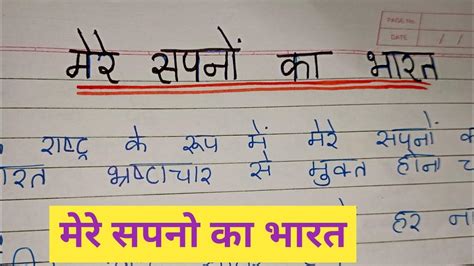 PAGE NO.
DATE / /
मेरे सपनों का भारत
राष्ट्र के रूप में मेरे सपनों
भ्रष्टाचार से मुक्त होना
हर
मेरे सपनो का भारत